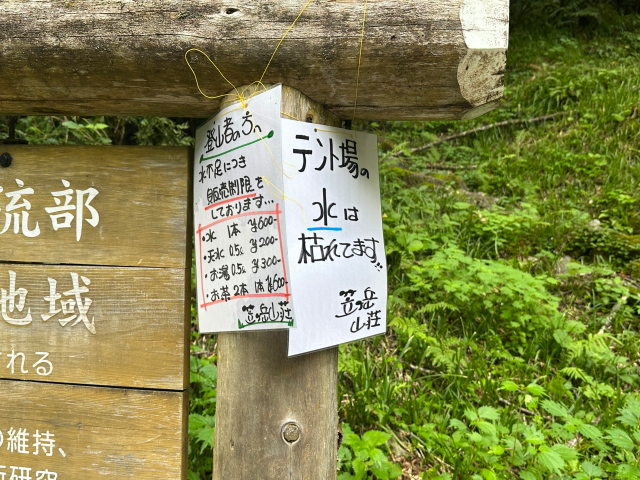 流部
地域
れる
維持、
登山者の方へ
水不足につき
販売制限を
しております…
・水 1本 ¥600-
・天水 0.5L ¥200-
・お湯 0.5L ¥300-
・お茶 2本 1本 ¥600-
笠ヶ岳山荘
テント場の
水は
枯れてます…
笠ヶ岳
山荘